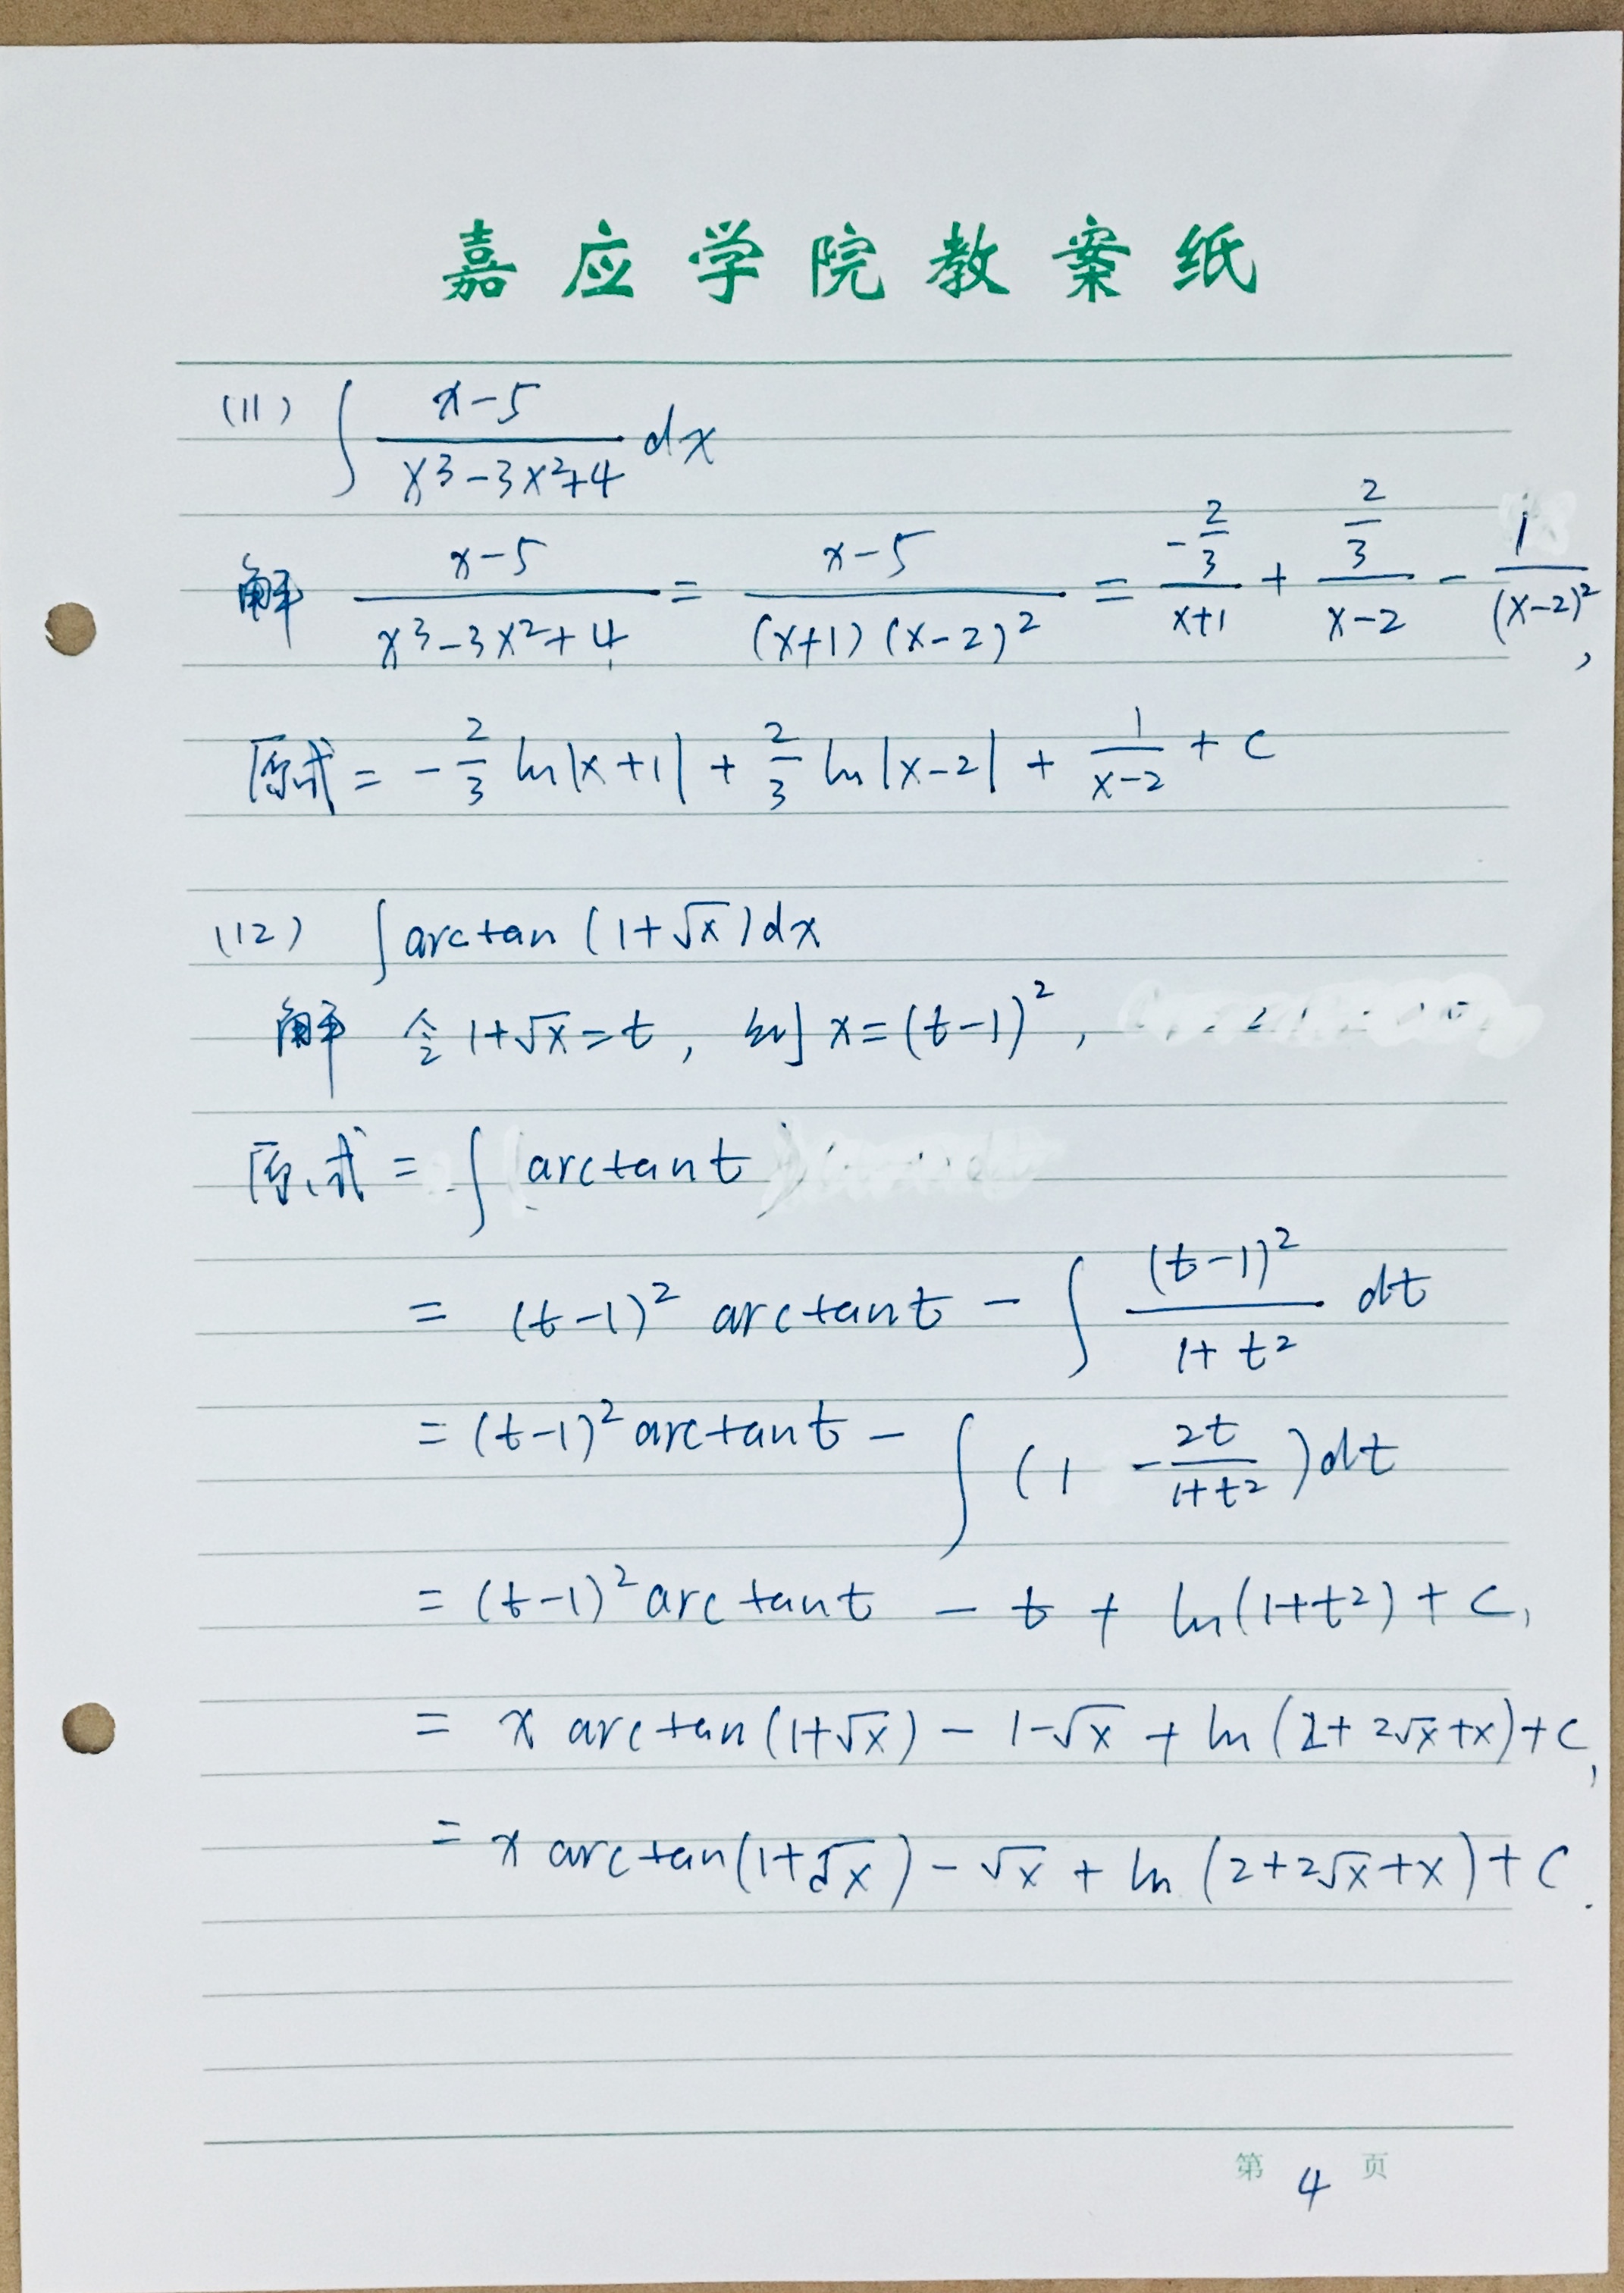 嘉应学院教案纸
(11) ∫ (x-5)/(x³-3x²+4) dx
解 (x-5)/(x³-3x²+4) = (x-5)/((x+1)(x-2)²) = (-2/3)/(x+1) + (2/3)/(x-2) - 1/(x-2)²,
原式 = -2/3 ln|x+1| + 2/3 ln|x-2| + 1/(x-2) + C
(12) ∫arctan(1+√x)dx
解 令1+√x=t, 则x=(t-1)²,
原式 = ∫ arctant
= (t-1)² arctant - ∫ (t-1)²/(1+t²) dt
= (t-1)² arctant - ∫ (1 - 2t/(1+t²))dt
= (t-1)² arctant - t + ln(1+t²) + C,
= x arctan(1+√x) - 1-√x + ln(2+2√x+x)+C,
= x arctan(1+√x) - √x + ln(2+2√x+x)+C.
第 4 页